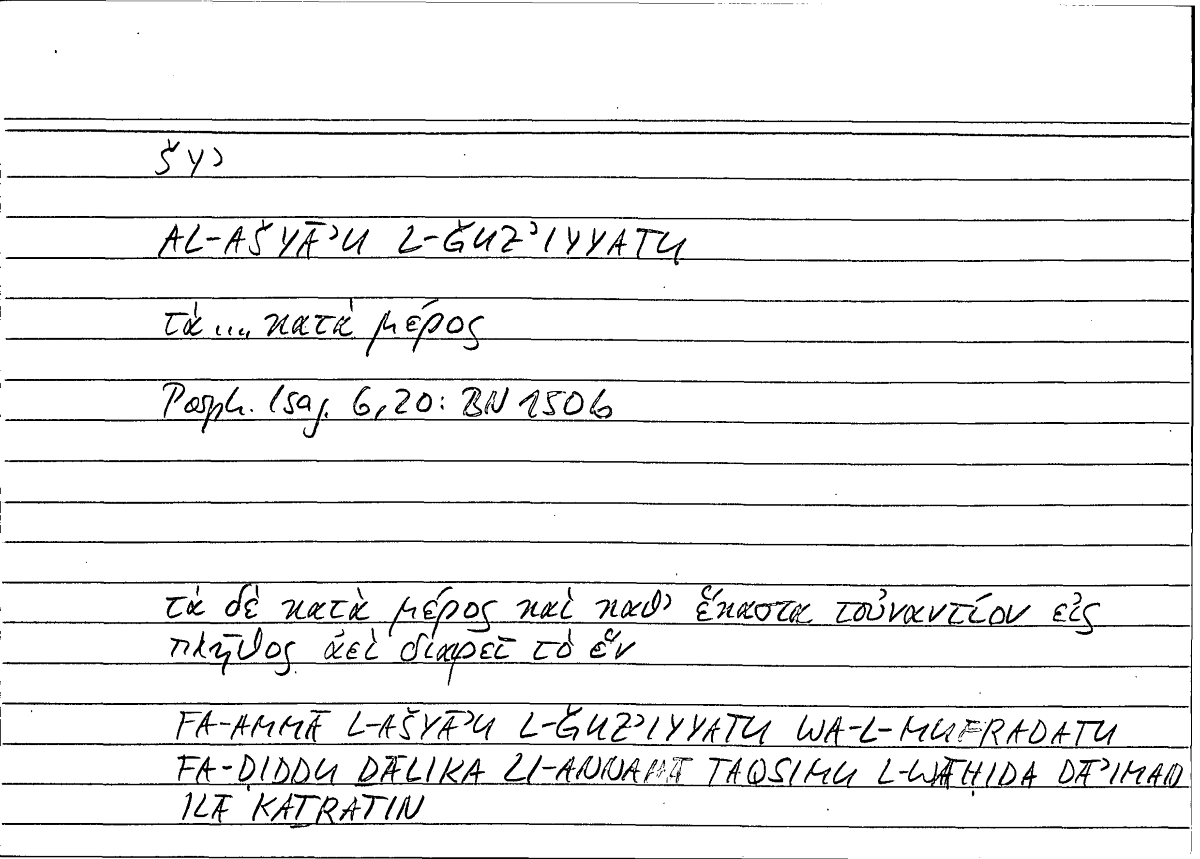 šyʾ
AL-AŠYĀʾU L-ǦUZʾIYYATU
τὰ ... κατὰ μέρος
Porph. Isag. 6,20: BN 150b
τὰ δὲ κατὰ μέρος καὶ καθ’ ἕκαστα τοὐναντίον εἰς
πλῆθος ἀεὶ διαιρεῖ τὸ ἕν
FA-AMMĀ L-AŠYĀʾU L-ǦUZʾIYYATU WA-L-MUFRADATU
FA-ḌIDDU ḎĀLIKA LI-ANNAHĀ TAQSIMU L-WĀḤIDA DĀʾIMAN
ILĀ KAṮRATIN